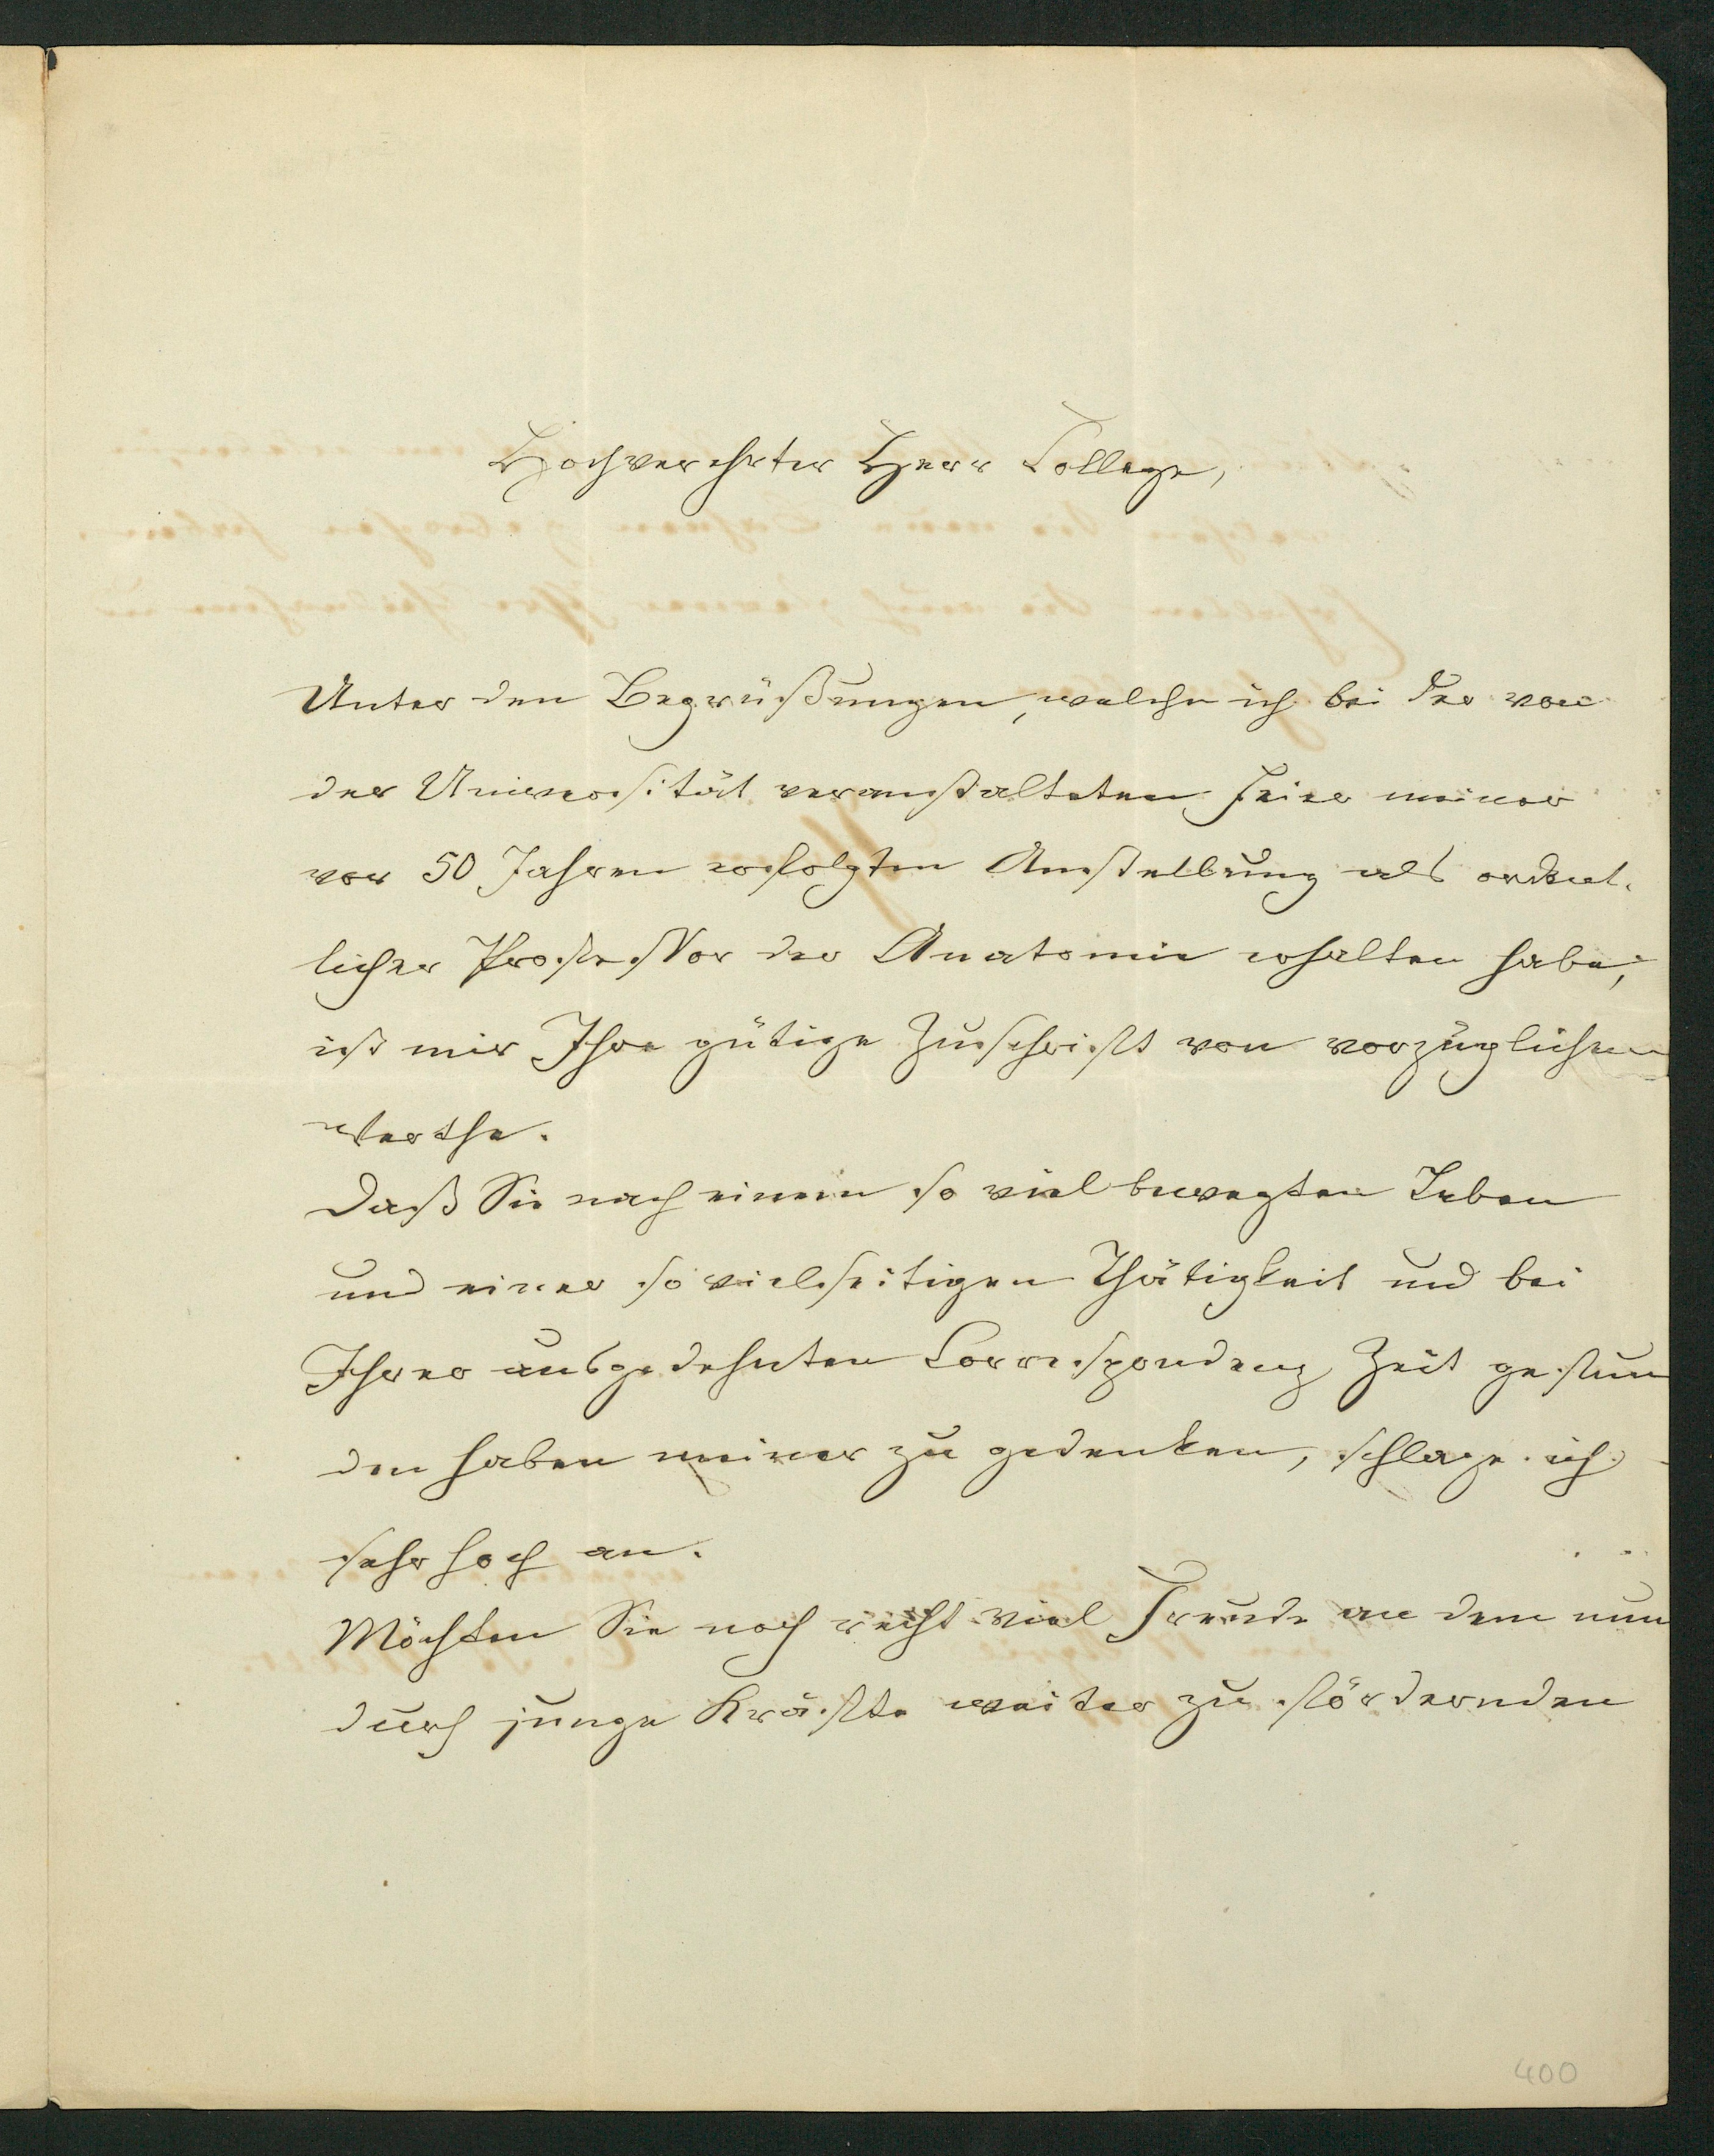 Hochverehrter Herr College,
Unter den Begrüßungen, welche ich bei der von
der Universität veranstalteten Feier meiner
vor 50 Jahren erfolgten Anstellung als ordent-
licher Professor der Anatomie erhalten habe,
ist mir Ihre gütige Zuschrift von vorzüglichem
Werthe.
Daß Sie nach einem so viel bewegten Leben
und einer so vielseitigen Thätigkeit und bei
Ihrer ausgedehnten Correspondenz Zeit gefun
den haben meiner zu gedenken, schlage ich
sehr hoch an.
Möchten Sie noch recht viel Freude an dem nun
durch junge Kräfte weiter zu fördernden
400